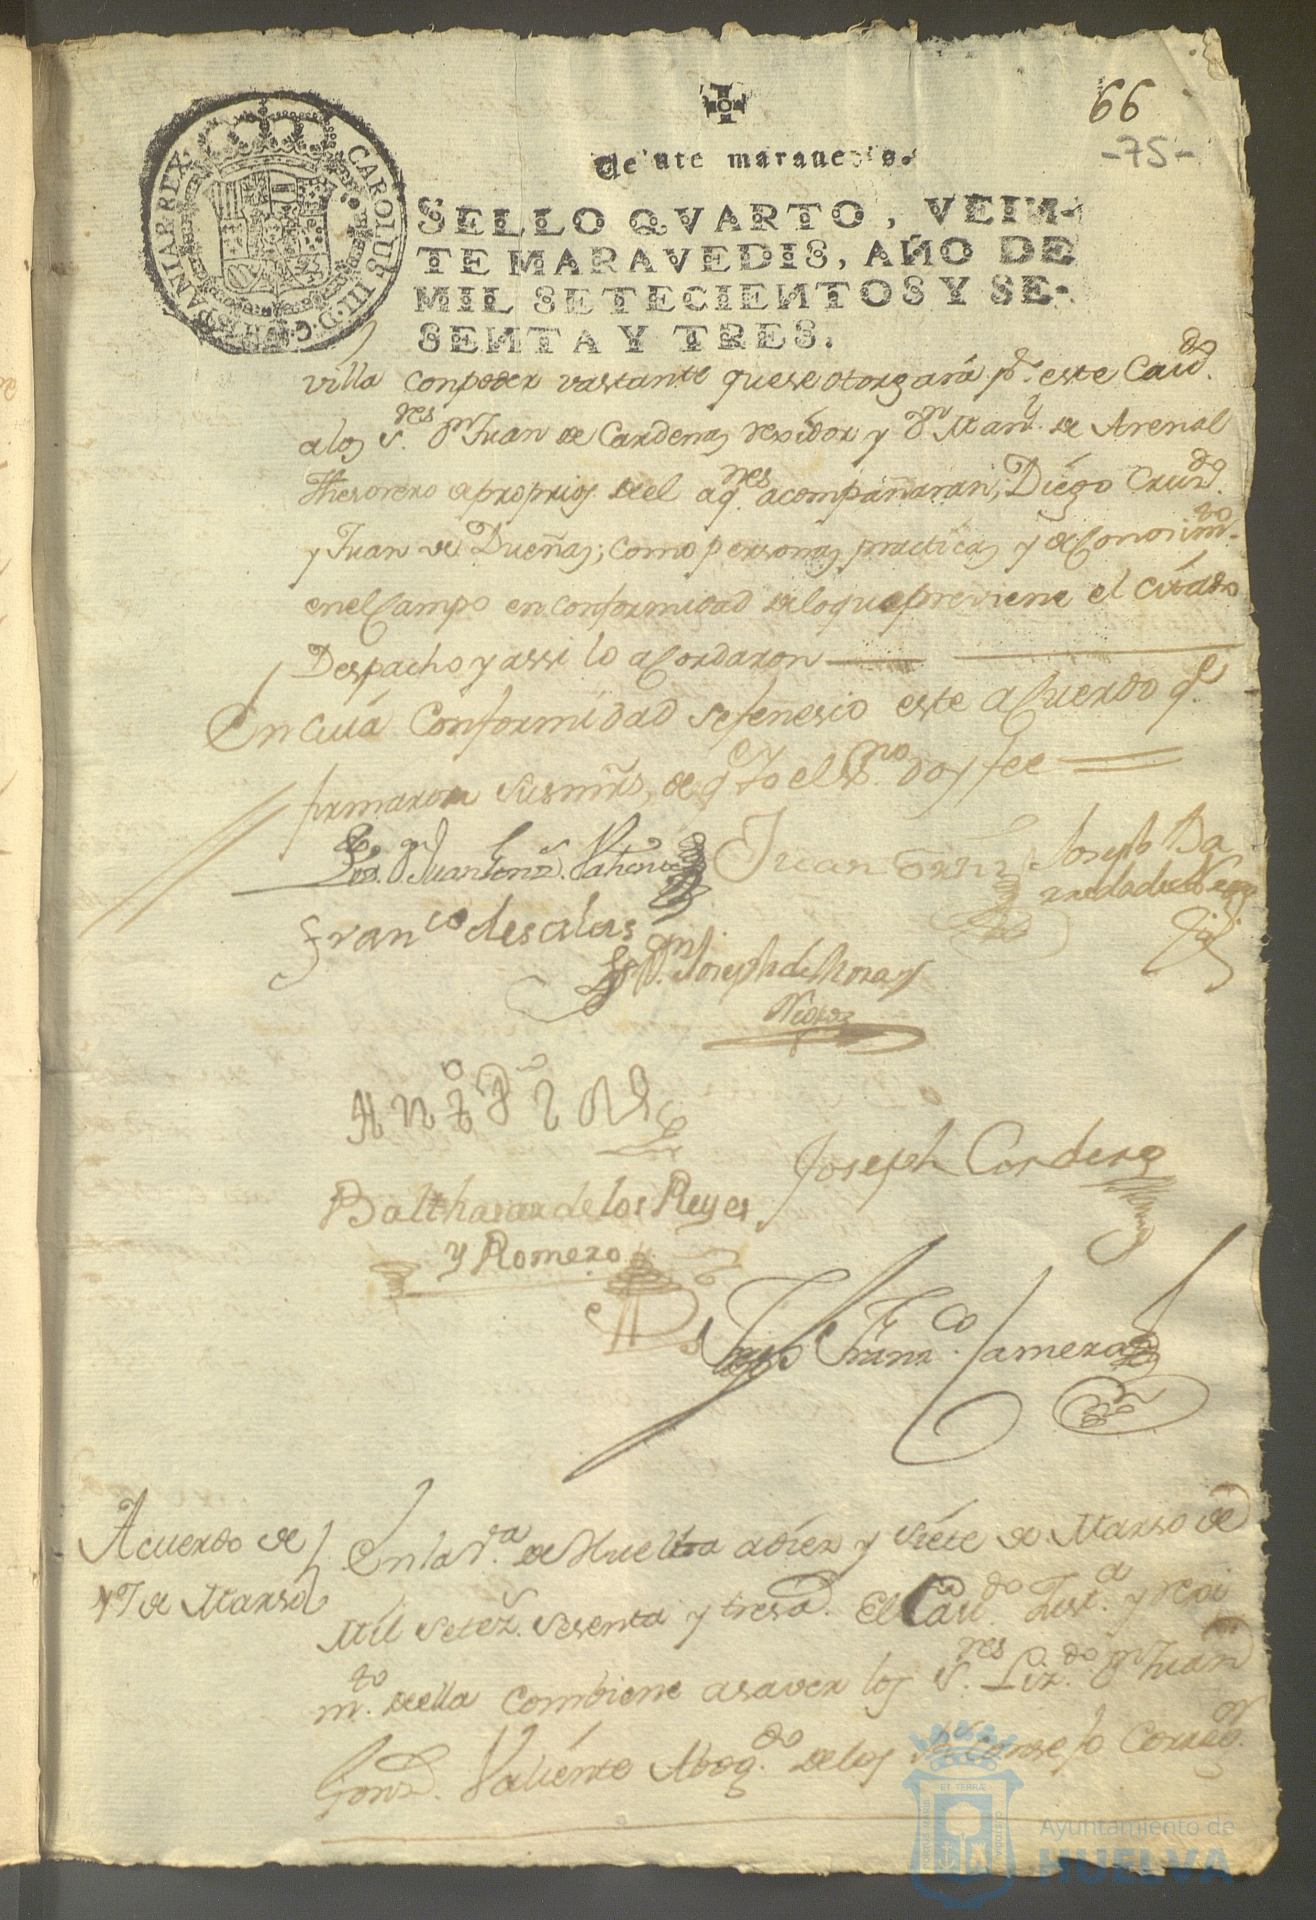 66
-75-
CAROLUS III D G HISPANIAR REX
Veinte maravedis.
SELLO QVARTO, VEIN-
TE MARAVEDIS, AÑO DE
MIL SETECIENTOS Y SE-
SENTA Y TRES.
villa con poder vastante que se otorgará pr. este Cavdo.
a los Sres. Dn Juan de Cardenas rexidor y Dn Manl. de Arenal
Thesorero de proprios del a qnes acompañaran, Diego Cruzdo.
y Juan de Dueñas, como personas practicas y de Conosimto.
en el Campo en conformidad de lo que previene el citado
Despacho y assi lo acordaron
En cuia conformidad se fenesio este acuerdo qe
firmaron sus mrds, de qe Yo el Essno doy fee
Lizdo. Dn Juan Gonz. Valiente
Juan
Joseph Ba
rreda de Vega
Franco de salas
Dn. Joseph de Mora y
Negro
Anto Dias
Joseph Cordero
Balthasar de los Reyes
y Romero
Franco. Camera
Acuerdo de
17 de Marso
En la Va. de Huelva a diez y siete de Marso de
Mil Setez. sesenta y tres a. El Cavdo Justa. y rexi
mto. della combiene a saver los Sres. Lizdo. Dn Juan
Gonz. Valiente Abogdo. de los Rs Consejo Corregor.
ET TERRÆ
Ayuntamiento de
HUELVA